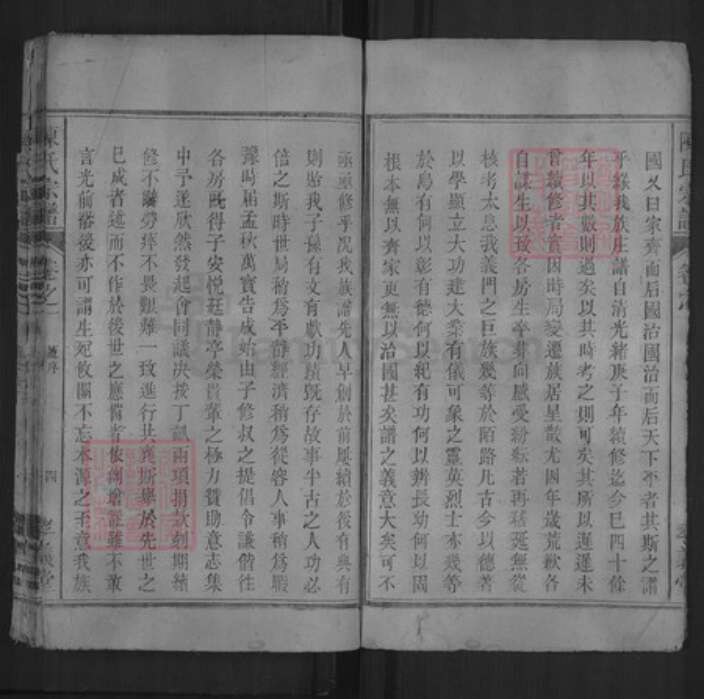 國久曰家齊而后國治國治而后天下平者其斯之謂
乎緣我族庄譜自清光緒庚子年續修迄今已四十餘
年以其數則過矣以其時考之則可矣其所以遲遲未
曾續修者實因時局變遷族居星散尤因年歲荒歉各
自謀生以致各房生卒葬向感受紛紜若再稽延無從
核考太息我義門之巨族幾等於陌路凡古今以德著
以學顯立大功建大業有儀可象之靈英烈士亦幾等
於烏有何以彰有德何以紀有功何以辨長幼何以固
根本無以齊家更無以治國甚矣譜之義意大矣可不
亟亟修乎况我族譜先人早創於前屢續於後有與有
則貽我子孫有文有獻功績既存故事半古之人功必
倍之斯時世局稍爲平靜經濟稍爲從容人事稍爲暇
豫時届孟秋萬寶告成始由子修叔之提倡令謙偕往
各房既得子安悦廷靜亭榮貴輩之極力賛助意志集
中予遂欣然發起會同議决按丁 兩項捐欵刻期續
修不辭勞瘁不畏艱難一致進行共襄斯舉於先世之
已成者述而不作於後世之應備者依例增 雖不敢
言光前裕後亦可謂生死攸關不忘本源之 意我族
陳氏宗譜
卷之一
譜序
四
義堂